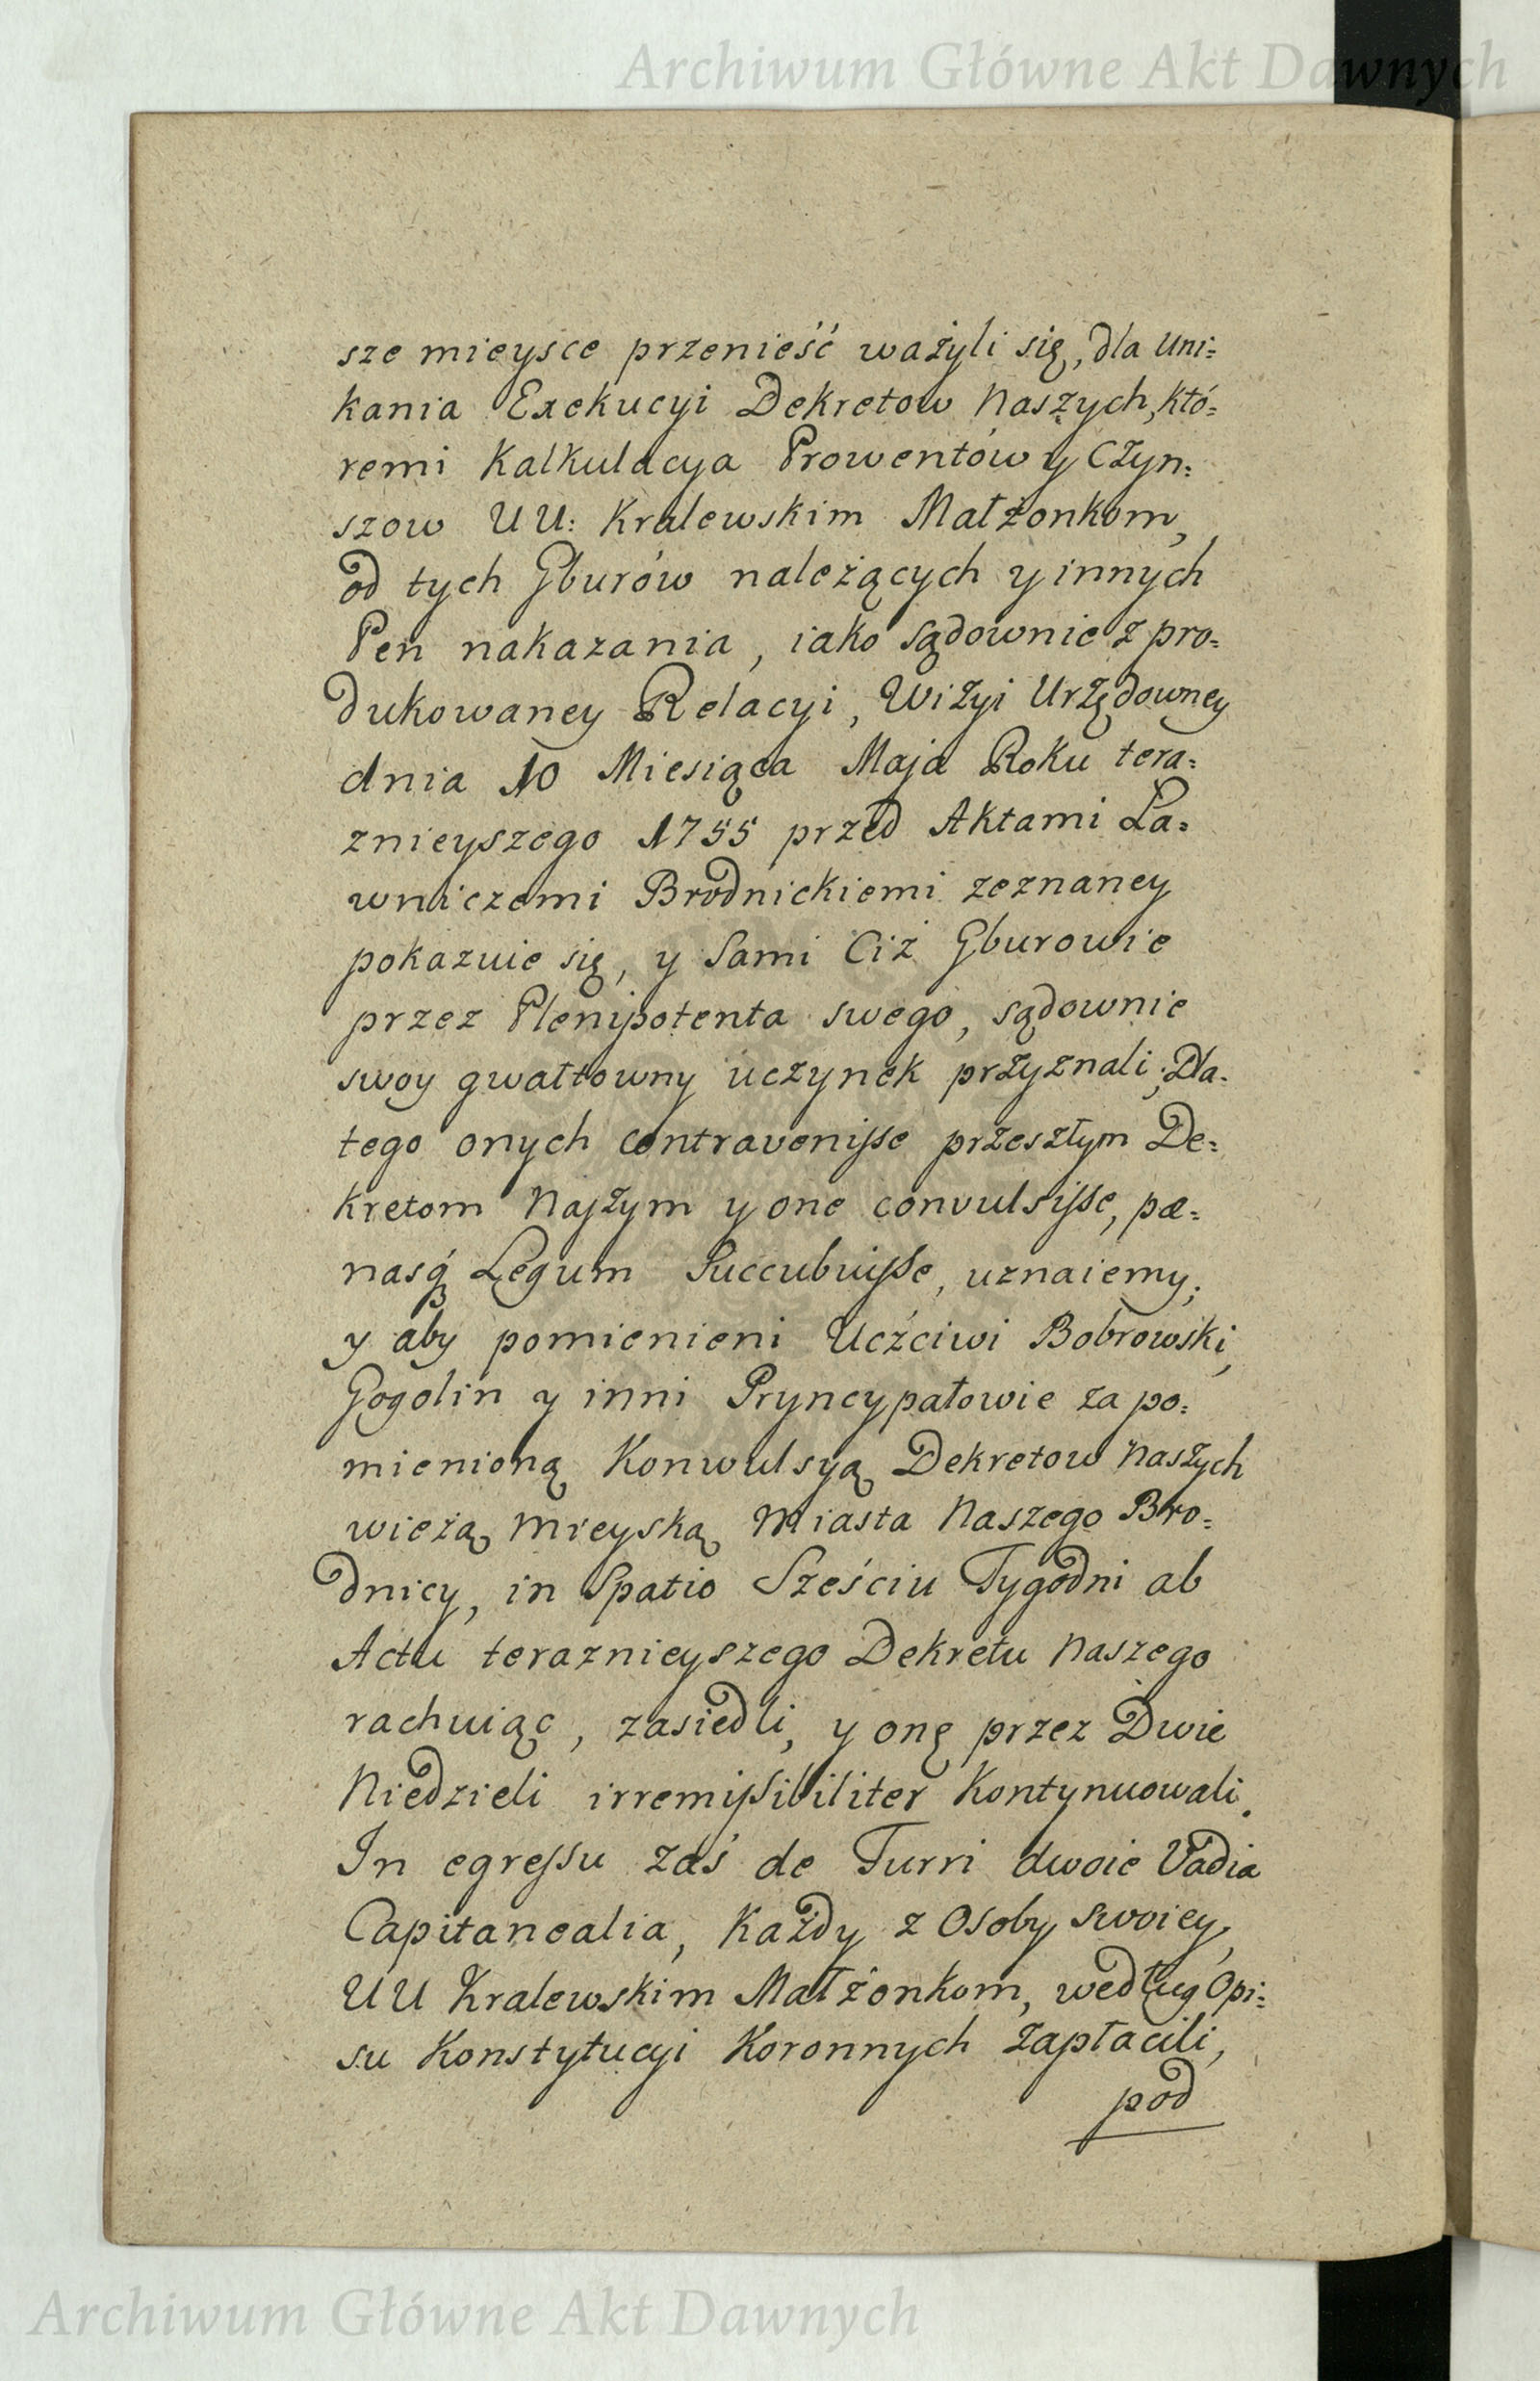 Archiwum Główne Akt Dawnych
sze mieysce przenieść ważyli się, dla Uni=
kania Exekucyi Dekretow Naszych, któ=
remi Kalkulacya Prowentów y Czyn=
szow UU: Kralewskim Małżonkom,
od tych Gburów należących y innych
Pen nakazania, iako sądownie z pro=
dukowaney Relacyi, Wizyi Urzędowney
dnia 10 Miesiąca Maja Roku tera=
znieyszego 1755 przed Aktami Ła=
wniczemi Brodnickiemi zeznaney
pokazuie się, y Sami Ciż Gburowie
przez Plenipotenta swego, sądownie
swoy gwałtowny uczynek przyznali; Dla=
tego onych contravenisse przeszłym De=
kretom Naszym y one convulsisse, pæ=
nasq́ Legum Succubuisse, uznaiemy;
y aby pomienieni Uczciwi Bobrowski,
Gogolin y inni Pryncypałowie za po=
mienioną Konwulsyą Dekretow Naszych
wieżą Mieyską Miasta Naszego Bro=
dnicy, in Spatio Sześciu Tygodni ab
Actu teraznieyszego Dekretu Naszego
rachuiąc, zasiedli, y onę przez Dwie
Niedzieli irremissibiliter Kontynuowali.
In egressu zaś de Turri dwoie Vadia
Capitanealia, Każdy z Osoby swoiey,
UU Kralewskim Małżonkom, według Opi=
su Konstytucyi Koronnych zapłacili,
pod
Archiwum Główne Akt Dawnych